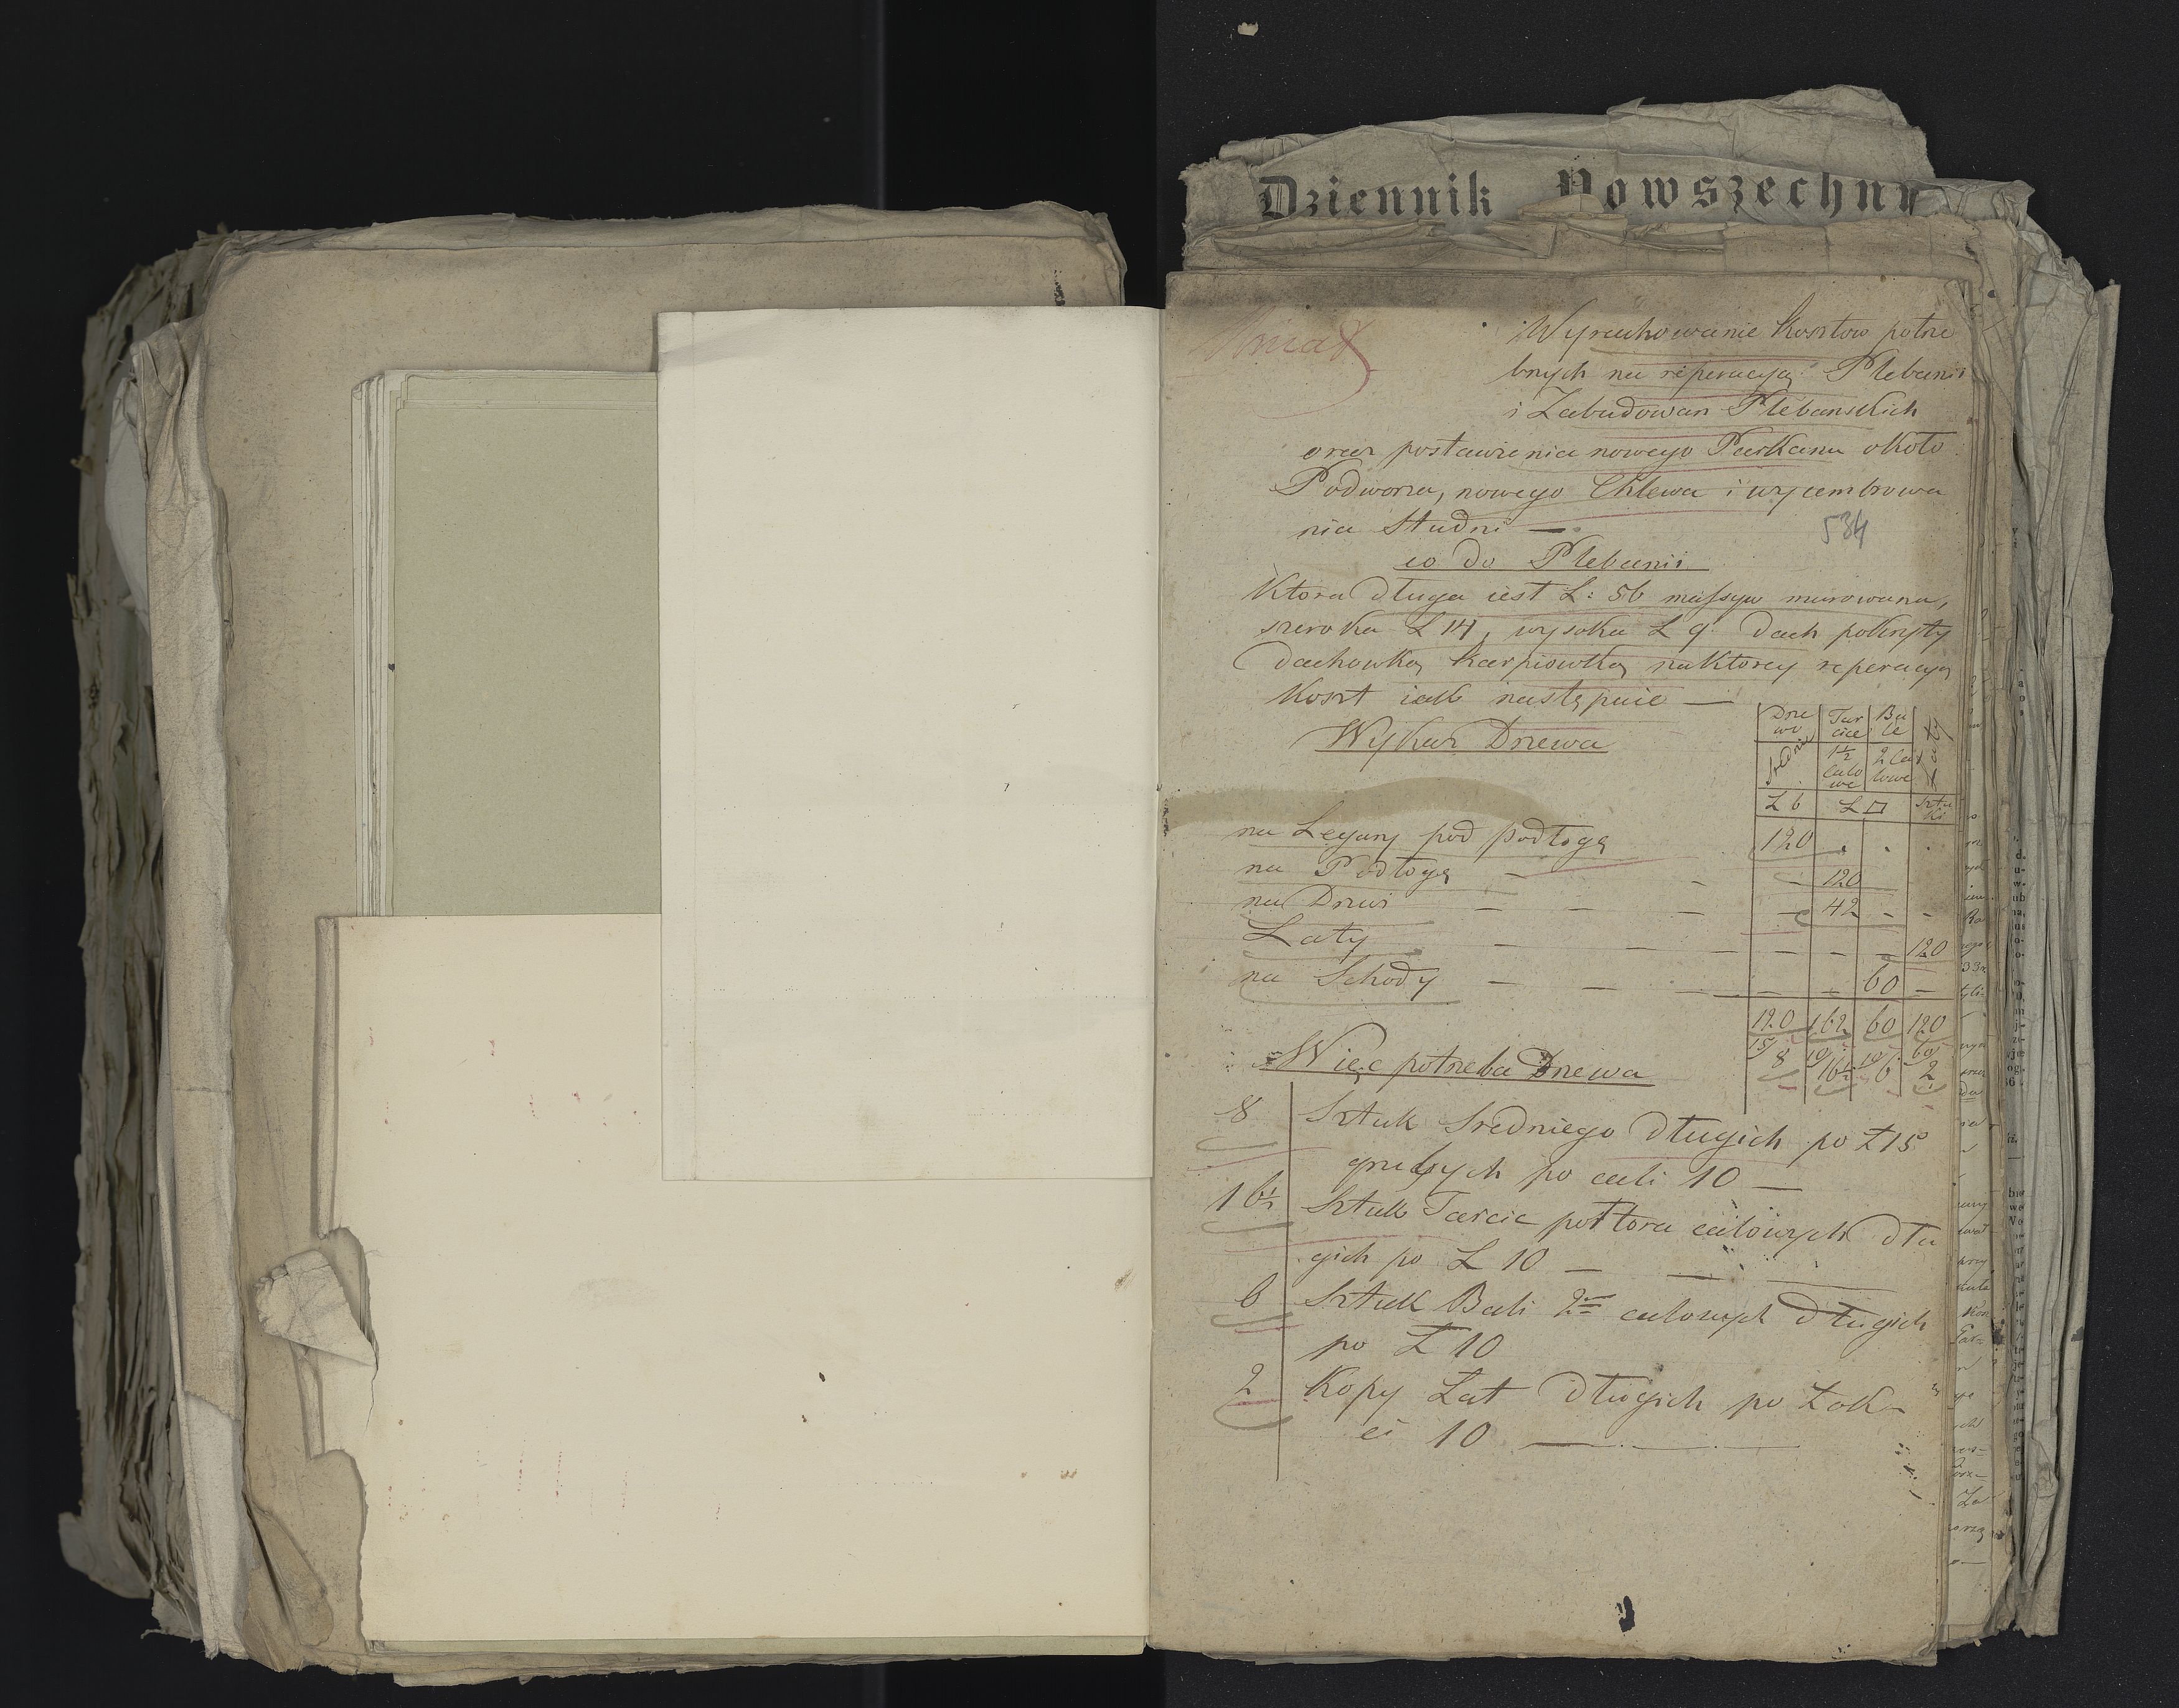 Dziennik Powszechny
Wyrachowanie Kosztow potrze
bnych na reperacyą Plebanii
i Zabudowan Plebanskich
oraz postawienia nowego Parkanu około
Podworza, nowego Chlewa i wycembrowa
nia Studni —
534
co do Plebanii
Ktora długa iest Ł: 56 massyw murowana,
szeroka Ł 14, wysoka Ł 9. Dach pokryty
dachowką Karpiowką na ktorey reperacyą
Koszt iak następuie —
Wykaz Drzewa
Drze wo | Tar cice | Ba le | Łaty
Srednie | 1½ calo we | 2 Cal lowe
Ł b | Ł □ | Sztu ki
na Legary pod podłogę 120 . . .
na Podłogę — — — 120
na Drzwi — — — — 42 - -
Łaty — — — — — — 120
na Schody — — — — — 60 —
120 | 162 | 60 | 120
15/8 | 10/16½ | 10/6 | 60/2
Więc potrzeba Drzewa
8 Sztuk Sredniego długich po Ł 15
grubych po cali 10 —
16½ Sztuk Tarcic połtora calowych dłu
gich po Ł 10 — —
6 Sztuk Bali 2 calowych długich
po Ł 10
2 Kopy Łat długich po Łok-
ci 10 —